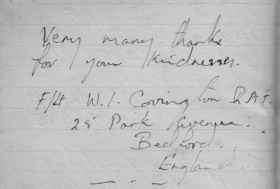 Very many thanks
for your kindnesses.
F/Lt W.I. Covington R.A.F.
25 Park Avenue.
Bedford,
England.